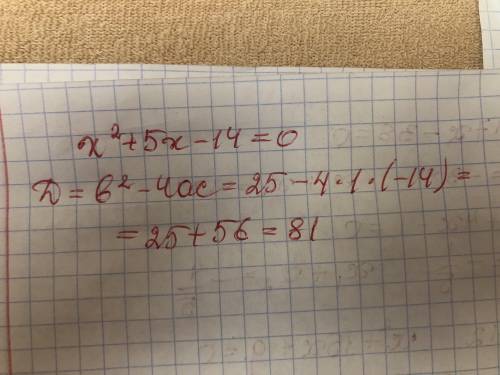 x²+5x-14=0
D=b²-4ac=25-4·1·(-14)=
=25+56=81